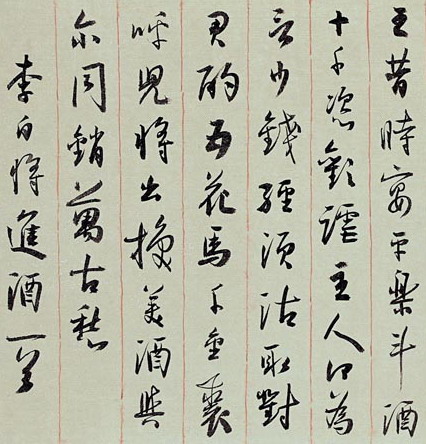 王昔時宴平樂斗酒
十千恣歡謔主人何為
言少錢徑須沽取對
君酌五花馬千金裘
呼兒將出換美酒與
尔同銷萬古愁
李白將進酒一首